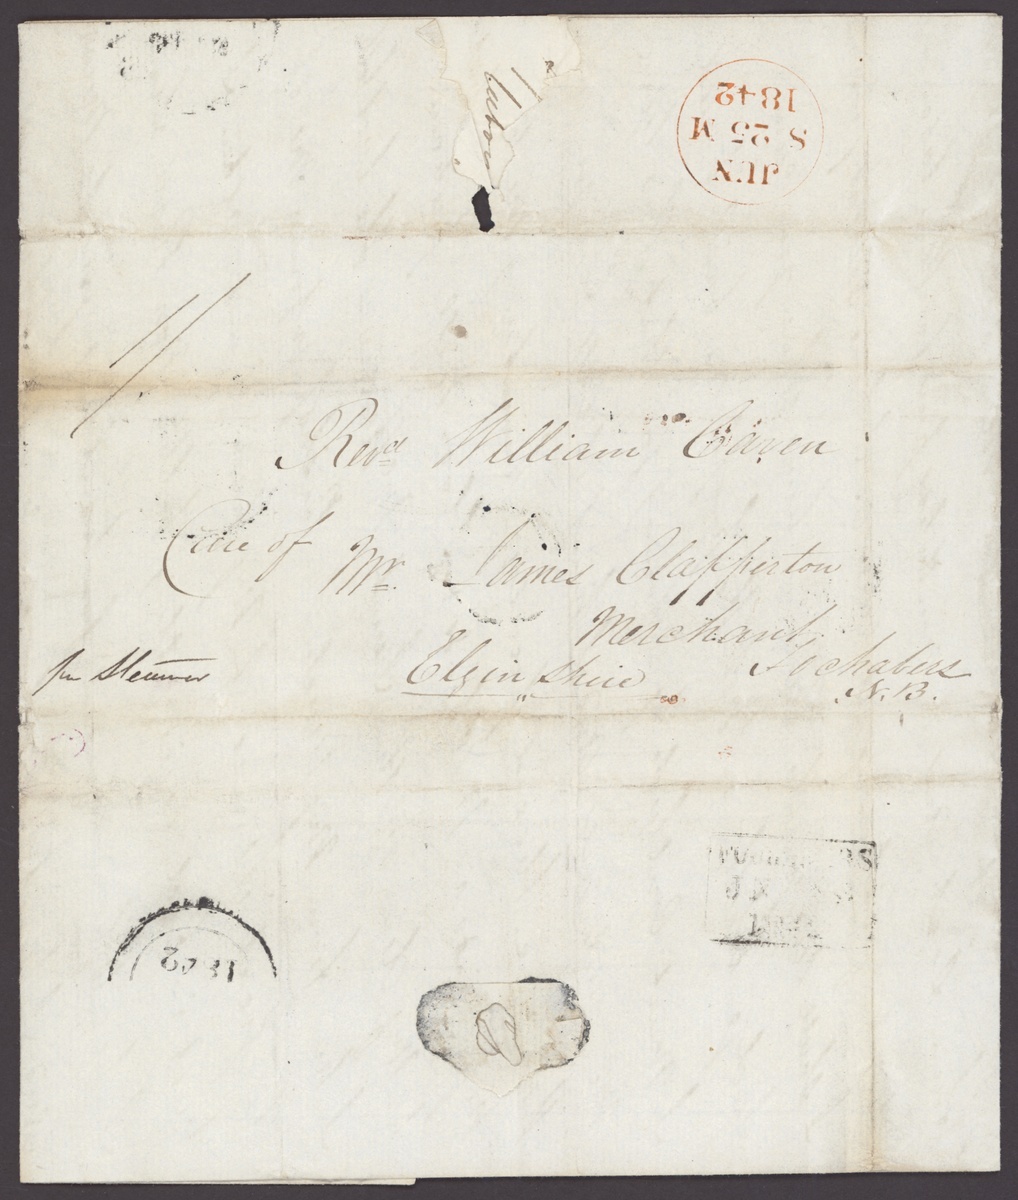 JUN
S 25 M
1842
Revd William Caven
Care of Mr. James Clapperton
Merchant,
Elginshire Fochabers
N.B.
pr Steamer
1842